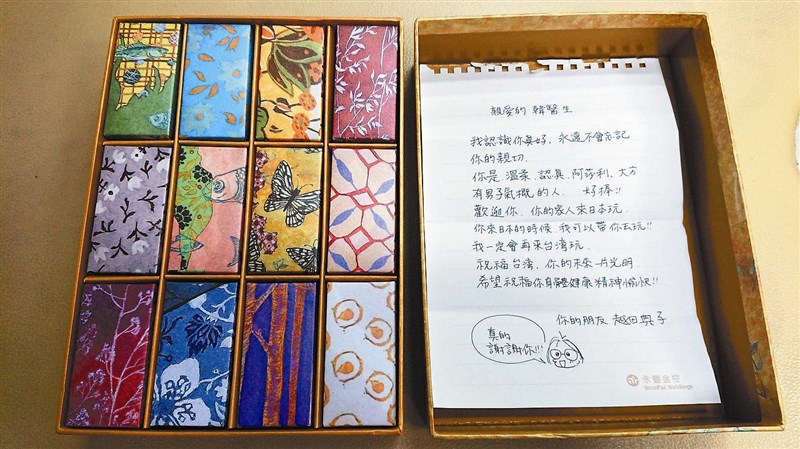 親愛的 韓醫生
我認識你真好, 永遠不會忘記
你的親切.
你是 溫柔. 認真. 阿莎利. 大方
有男子氣概的人. 好棒!!
歡迎你. 你的家人來日本玩.
你來日本的時候, 我可以帶你去玩!!
我一定會再來台湾玩.
祝福台湾. 你的未來一片光明.
希望祝福你身體健康 精神愉快!!
你的朋友 越田 子
真的
謝謝你!!!
永豐金控
SinoPac Holdings